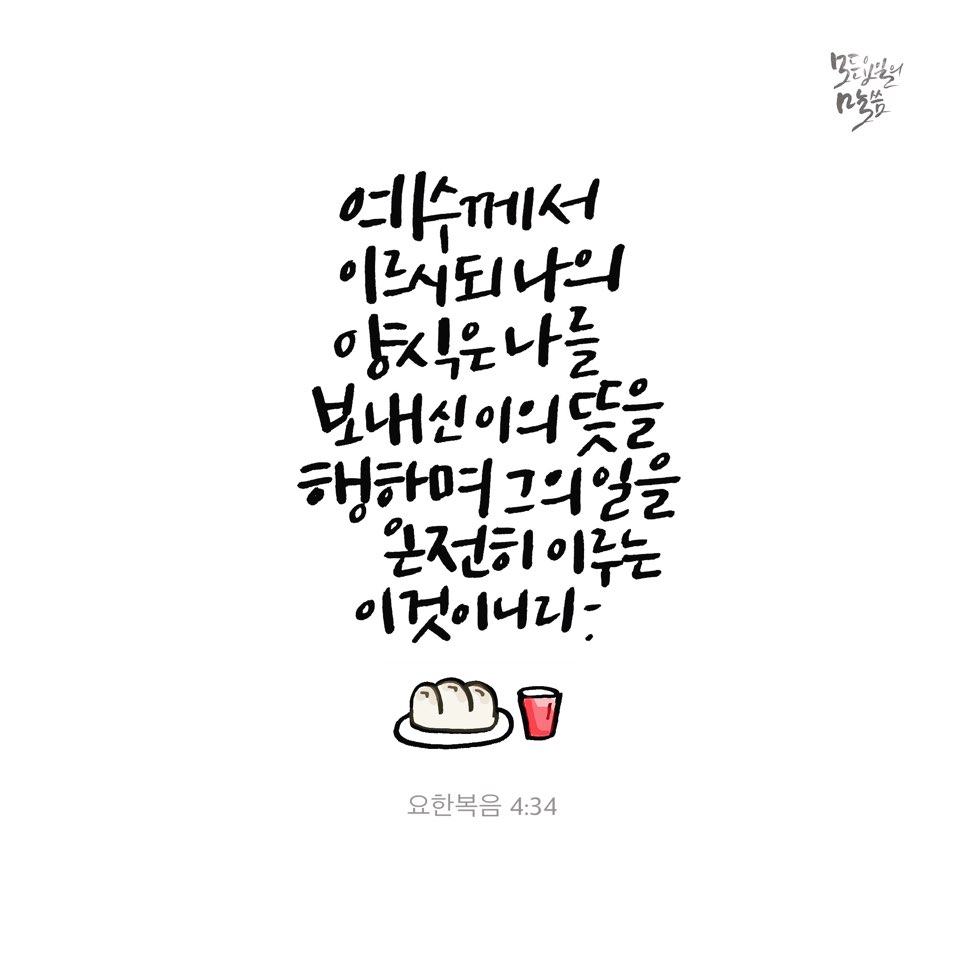 예수께서
이르시되 나의
양식은 나를
보내신 이의 뜻을
행하며 그의 일을
온전히 이루는
이것이니라-
요한복음 4:34
말씀